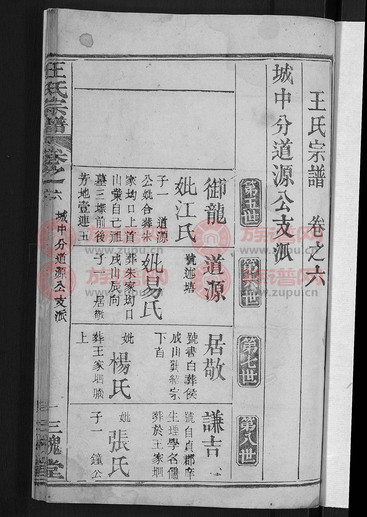 王氏宗譜 卷之六
城中分道源公支派
第五世
第六世
第七世
第八世
御龍
妣江氏
子一 道源
公妣合葬朱
家坳口上首
山業自亡
墓三塚前後
芳地壹連五
道源
號述塘
妣易氏
葬朱家坳口
戌山辰向
子一 居敬
居敬
號書白葬侯
下首
妣楊氏
葬王家垇
上
謙吉
號自貞郡庠
生理學名儒
葬於王家垇
妣張氏
子一 鐘公
王氏宗譜
卷之六
城中分道源公支派
三槐堂
族譜网
www.zupu.cn